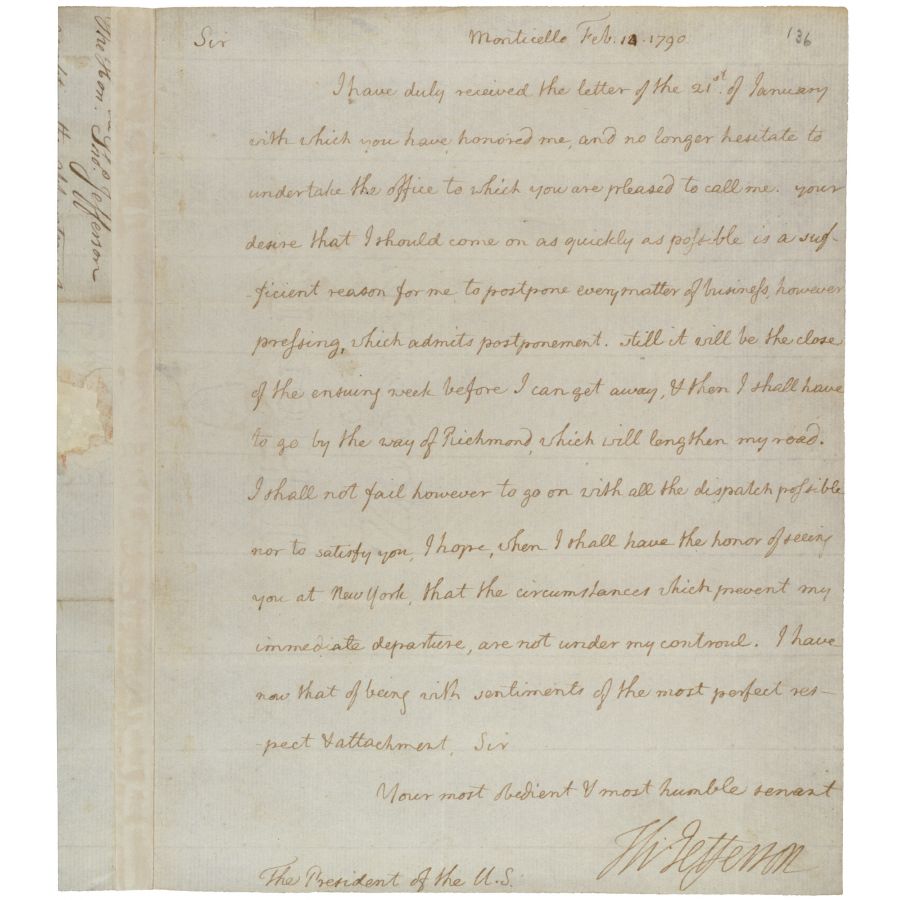 Sir Monticello Feb. 14. 1790. 136
I have duly received the letter of the 21st. of January
with which you have honored me, and no longer hesitate to
undertake the office to which you are pleased to call me. your
desire that I should come on as quickly as possible is a suf-
-ficient reason for me to postpone every matter of business, however
pressing, which admits postponement. still it will be the close
of the ensuing week before I can get away, & then I shall have
to go by the way of Richmond, which will lengthen my road.
I shall not fail however to go on with all the dispatch possible
nor to satisfy you, I hope, when I shall have the honor of seeing
you at New York, that the circumstances which prevent my
immediate departure, are not under my controul. I have
now that of being with sentiments of the most perfect res-
-pect & attachment, Sir
Your most obedient & most humble servant
Th: Jefferson
The President of the U.S.
The Hon.
Jefferson